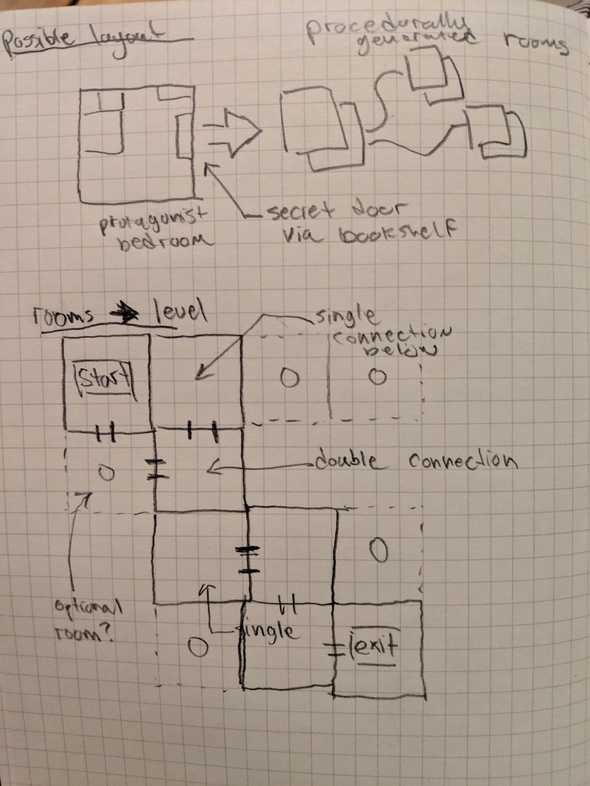 possible layout
procedurally
generated rooms
protagonist
bedroom
secret door
via bookshelf
rooms → level
single
connection
below
start
O
O
O
double connection
O
optional
room?
single
O
exit